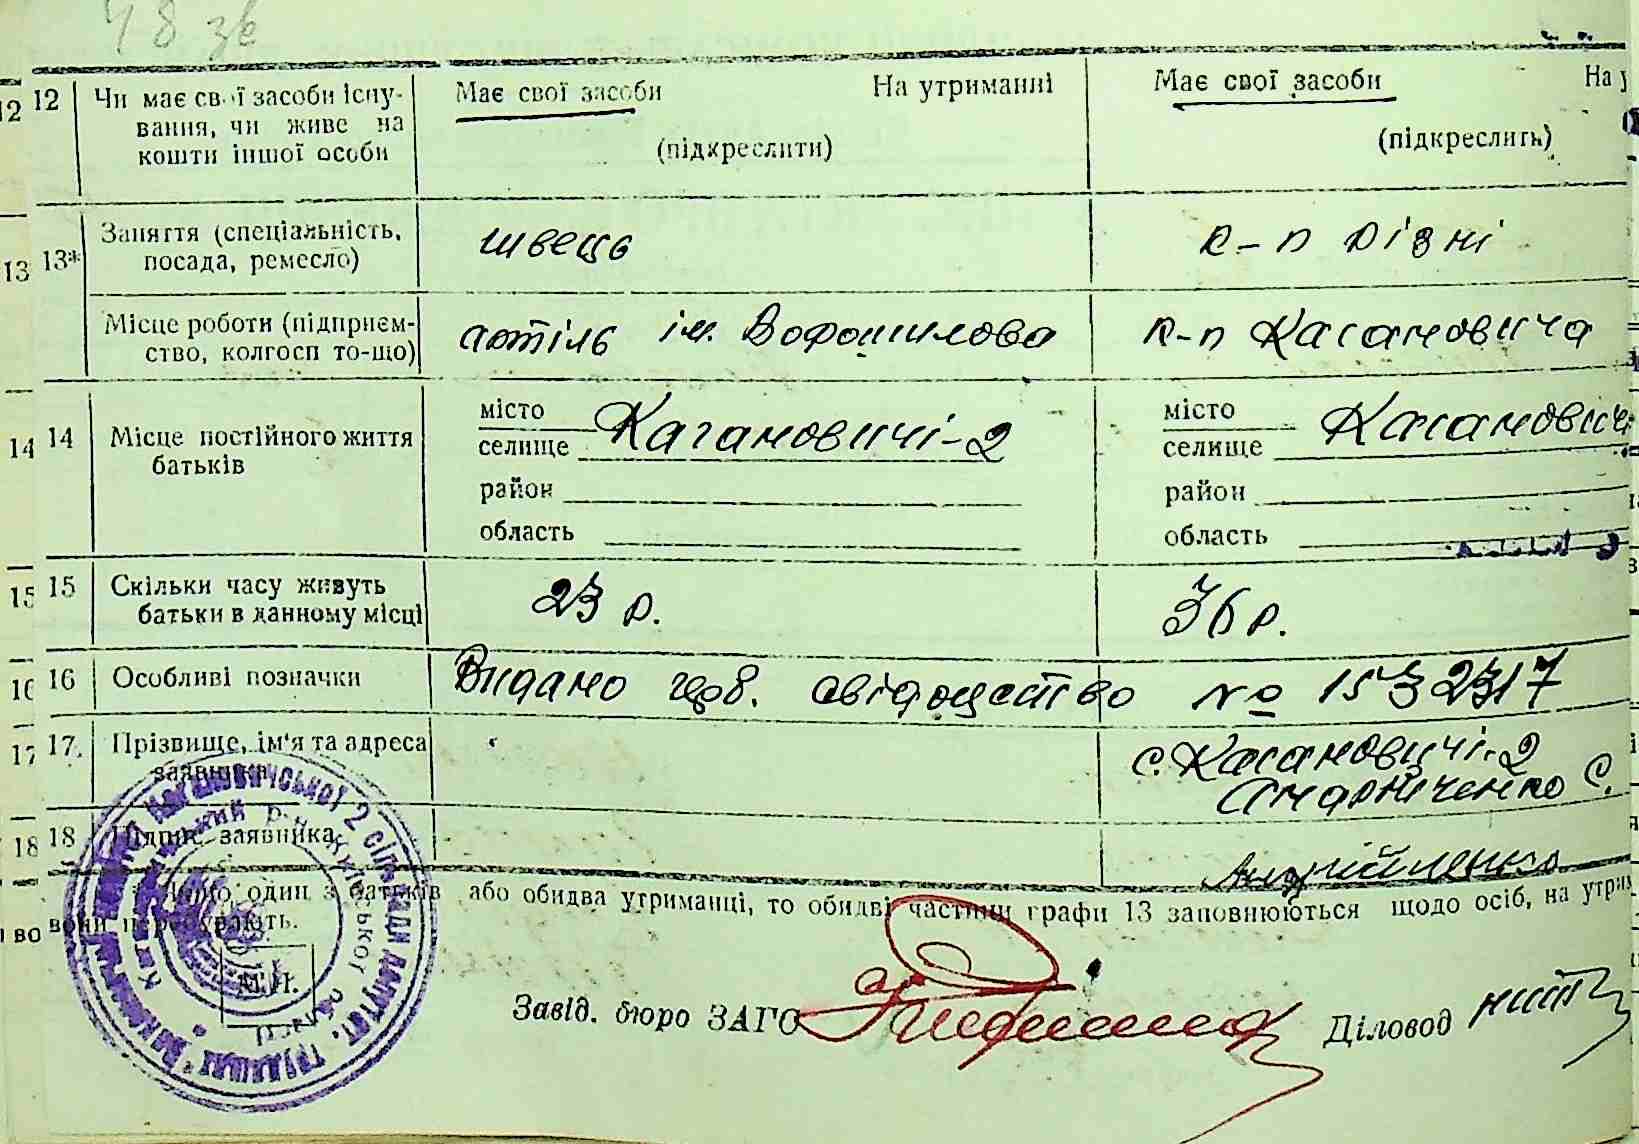 48 зв
12 12 Чи має свої засоби існу- Має свої засоби На утриманні Має свої засоби На у
вання, чи живе на (підкреслити) (підкреслить)
кошти іншої особи
13 13* Заняття (спеціальність, швець к-п різні
посада, ремесло)
Місце роботи (підприєм- артіль ім. Ворошилова к-п Кагановича
ство, колгосп то-що)
14 14 Місце постійного життя місто Кагановичі-2 місто Кагановичі
батьків селище селище
район район
область область
15 15 Скільки часу живуть 23 р. 36 р.
батьки в данному місці
16 16 Особливі позначки Видано свідоцтво № 1532317
17 17. Прізвище, ім'я та адреса с. Кагановичі-2
заявника С.
18 18 Підпис заявника
* Якщо один з батьків або обидва утриманці, то обидві частини графи 13 заповнюються щодо осіб, на утрим
во вони перебувають.
М.П.
Завід. бюро ЗАГС Діловод
Кагановичської 2 сільради депутат. трудящих
р-н Київської області